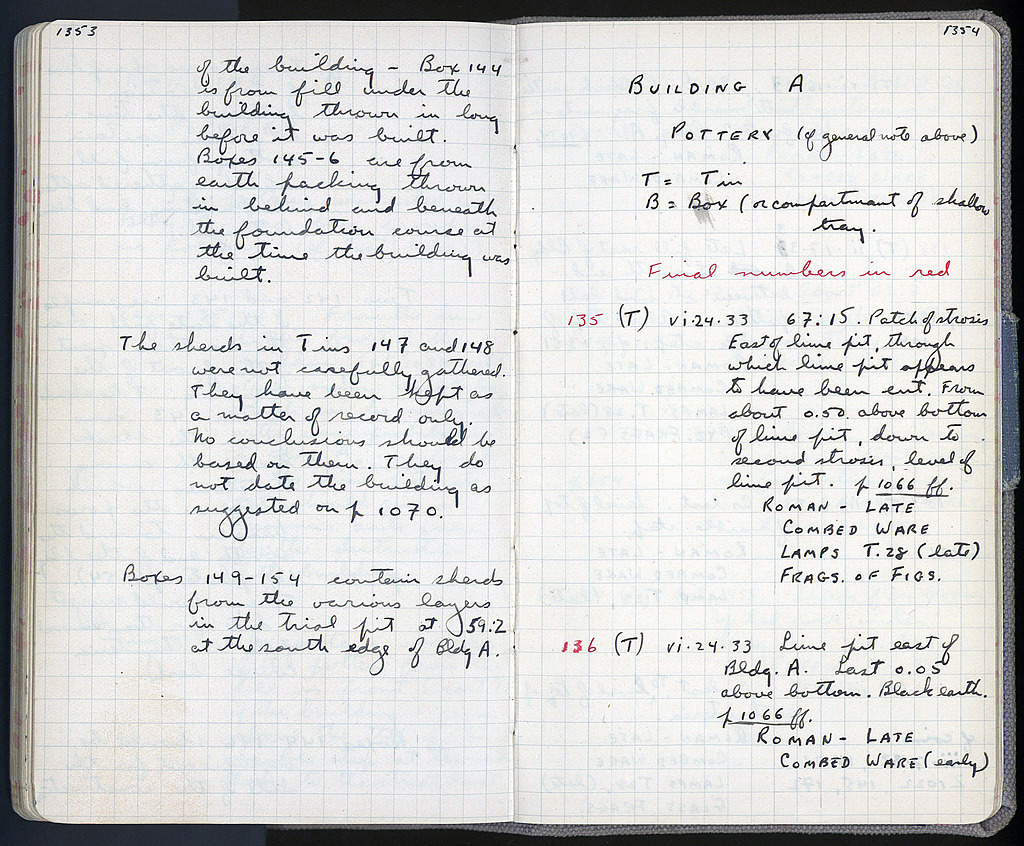 1353
of the building - Box 144
is from fill under the
building thrown in long
before it was built.
Boxes 145-6 are from
earth packing thrown
in behind and beneath
the foundation course at
the time the building was
built.
The sherds in Tins 147 and 148
were not carefully gathered.
They have been kept as
a matter of record only.
No conclusions should be
based on them. They do
not date the building as
suggested on p 1070.
Boxes 149-154 contain sherds
from the various layers
in the trial pit at 59:2
at the south edge of Bldg A.
1354
BUILDING A
POTTERY (cf general note above)
T = Tin
B = Box (or compartment of shallow
tray.
Final numbers in red
135 (T) vi.24.33 67:15. Patch of strosis
East of lime pit, through
which lime pit appears
to have been cut. From
about 0.50. above bottom
of lime pit, down to
second strosis, level of
lime pit. p 1066 ff.
ROMAN - LATE
COMBED WARE
LAMPS T.28 (late)
FRAGS. OF FIGS.
136 (T) vi.24.33 Lime pit east of
Bldg. A. Last 0.05
above bottom. Black earth.
p 1066 ff.
ROMAN - LATE
COMBED WARE (early)